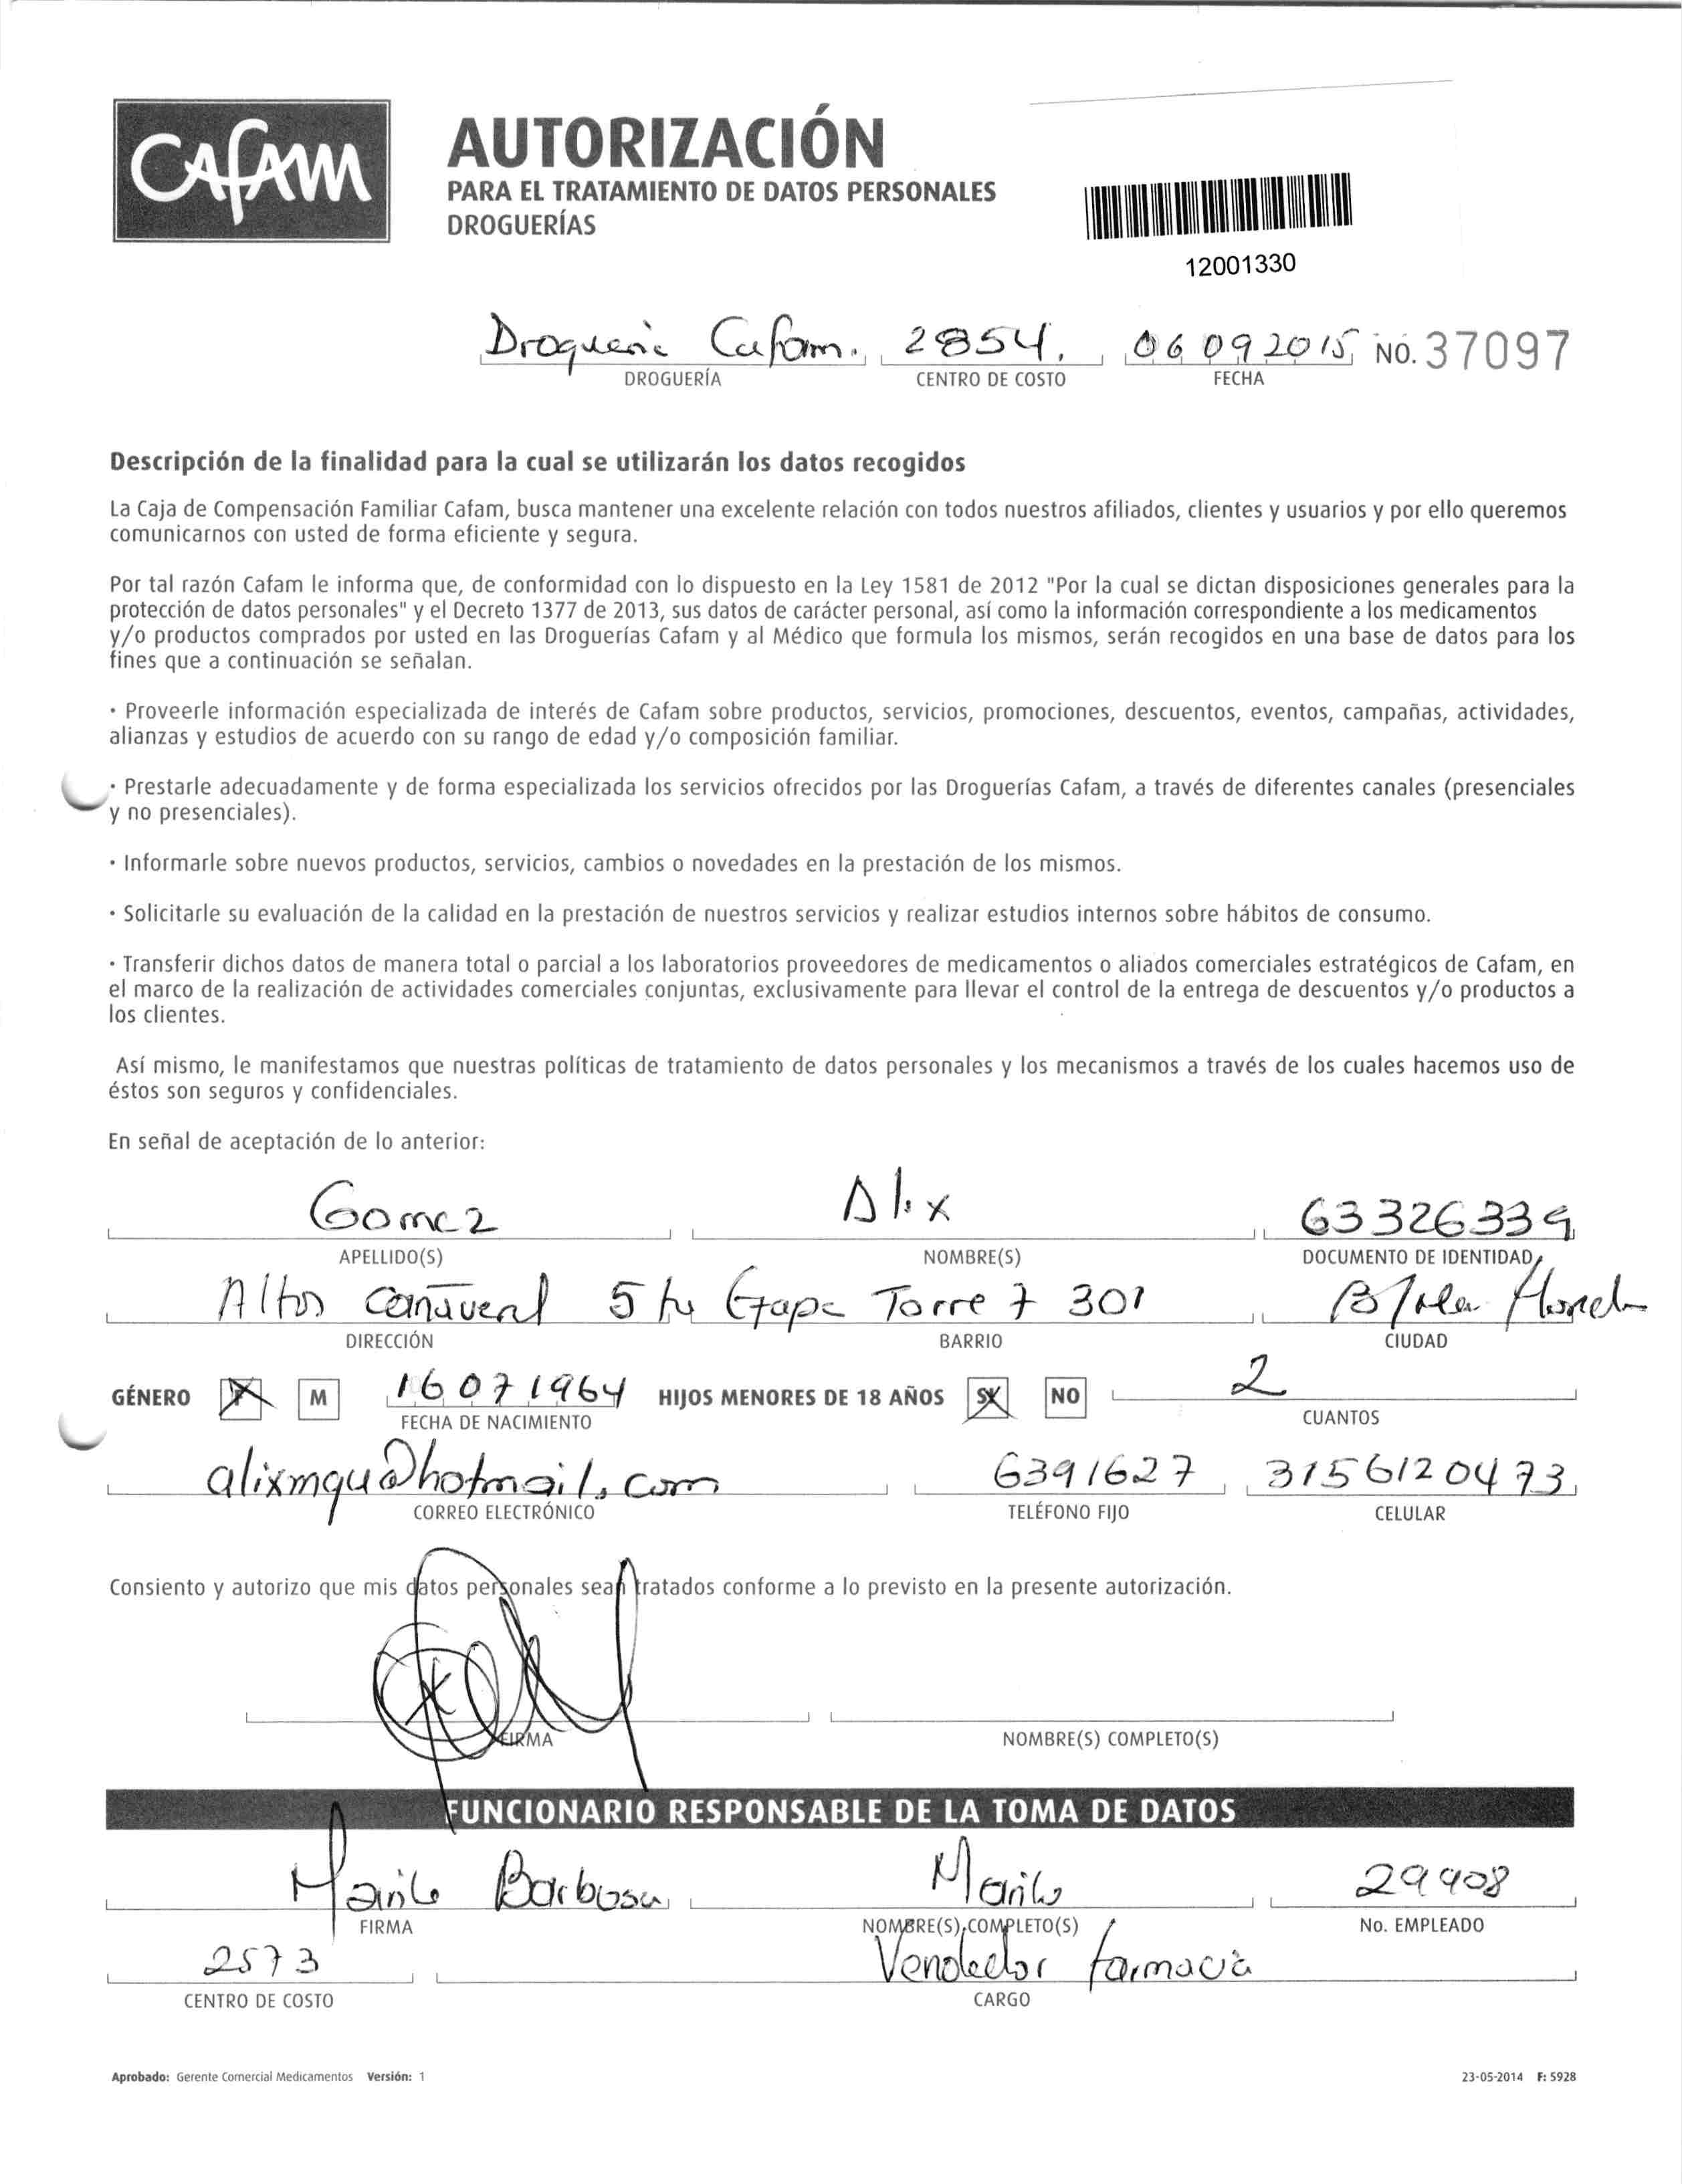 Cafam
AUTORIZACIÓN
PARA EL TRATAMIENTO DE DATOS PERSONALES
DROGUERÍAS
12001330
Drogueria Cafam. 2854. 06 09 2015 NO. 37097
DROGUERÍA CENTRO DE COSTO FECHA
Descripción de la finalidad para la cual se utilizarán los datos recogidos
La Caja de Compensación Familiar Cafam, busca mantener una excelente relación con todos nuestros afiliados, clientes y usuarios y por ello queremos
comunicarnos con usted de forma eficiente y segura.
Por tal razón Cafam le informa que, de conformidad con lo dispuesto en la Ley 1581 de 2012 "Por la cual se dictan disposiciones generales para la
protección de datos personales" y el Decreto 1377 de 2013, sus datos de carácter personal, así como la información correspondiente a los medicamentos
y/o productos comprados por usted en las Droguerías Cafam y al Médico que formula los mismos, serán recogidos en una base de datos para los
fines que a continuación se señalan.
· Proveerle información especializada de interés de Cafam sobre productos, servicios, promociones, descuentos, eventos, campañas, actividades,
alianzas y estudios de acuerdo con su rango de edad y/o composición familiar.
· Prestarle adecuadamente y de forma especializada los servicios ofrecidos por las Droguerías Cafam, a través de diferentes canales (presenciales
y no presenciales).
· Informarle sobre nuevos productos, servicios, cambios o novedades en la prestación de los mismos.
· Solicitarle su evaluación de la calidad en la prestación de nuestros servicios y realizar estudios internos sobre hábitos de consumo.
· Transferir dichos datos de manera total o parcial a los laboratorios proveedores de medicamentos o aliados comerciales estratégicos de Cafam, en
el marco de la realización de actividades comerciales conjuntas, exclusivamente para llevar el control de la entrega de descuentos y/o productos a
los clientes.
Así mismo, le manifestamos que nuestras políticas de tratamiento de datos personales y los mecanismos a través de los cuales hacemos uso de
éstos son seguros y confidenciales.
En señal de aceptación de lo anterior:
Gomez Alix 63326339
APELLIDO(S) NOMBRE(S) DOCUMENTO DE IDENTIDAD
Altos Cañaveral 5 ta Etapa Torre 7 301
DIRECCIÓN BARRIO CIUDAD
GÉNERO F M 16 07 1964 HIJOS MENORES DE 18 AÑOS SI NO 2
FECHA DE NACIMIENTO CUANTOS
alixmqu@hotmail.com 6391627 3156120473
CORREO ELECTRÓNICO TELÉFONO FIJO CELULAR
Consiento y autorizo que mis datos personales sean tratados conforme a lo previsto en la presente autorización.
FIRMA NOMBRE(S) COMPLETO(S)
FUNCIONARIO RESPONSABLE DE LA TOMA DE DATOS
Barbosa 29908
FIRMA NOMBRE(S) COMPLETO(S) No. EMPLEADO
2573 Vendedor farmacia
CENTRO DE COSTO CARGO
Aprobado: Gerente Comercial Medicamentos Versión: 1 23-05-2014 F: 5928